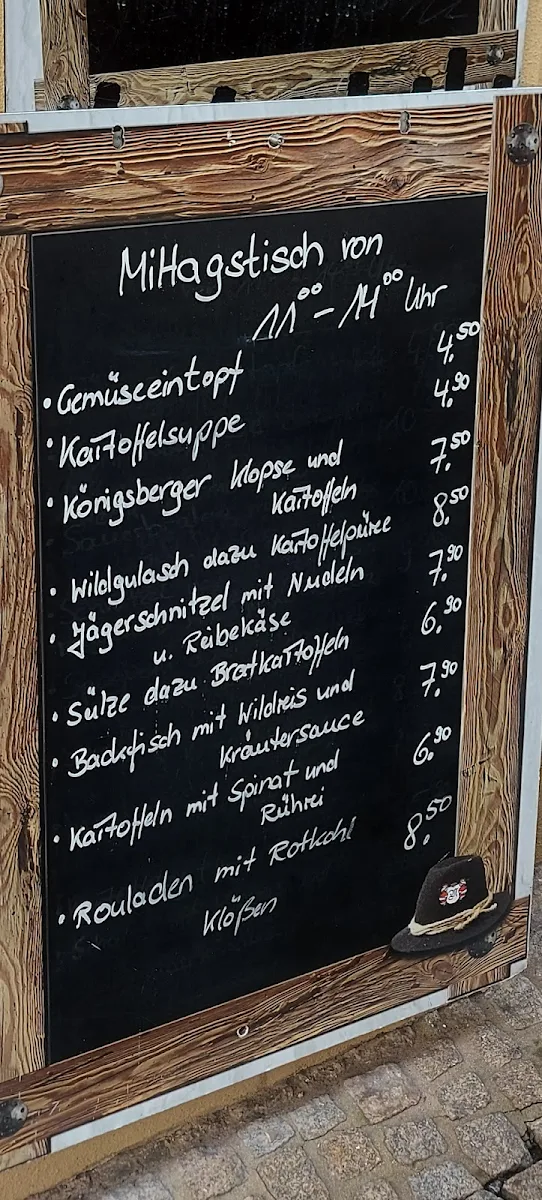 Mittagstisch von
11⁰⁰ - 14⁰⁰ Uhr
• Gemüseeintopf 4.50
• Kartoffelsuppe 4.90
• Königsberger Klopse und 7.50
Kartoffeln
• Wildgulasch dazu Kartoffelpüree 8.50
• Jägerschnitzel mit Nudeln 7.90
u. Reibekäse
• Sülze dazu Bratkartoffeln 6.90
• Backfisch mit Wildreis und 7.90
Kräutersauce
• Kartoffeln mit Spinat und 6.90
Rührei
• Rouladen mit Rotkohl 8.50
Klößen